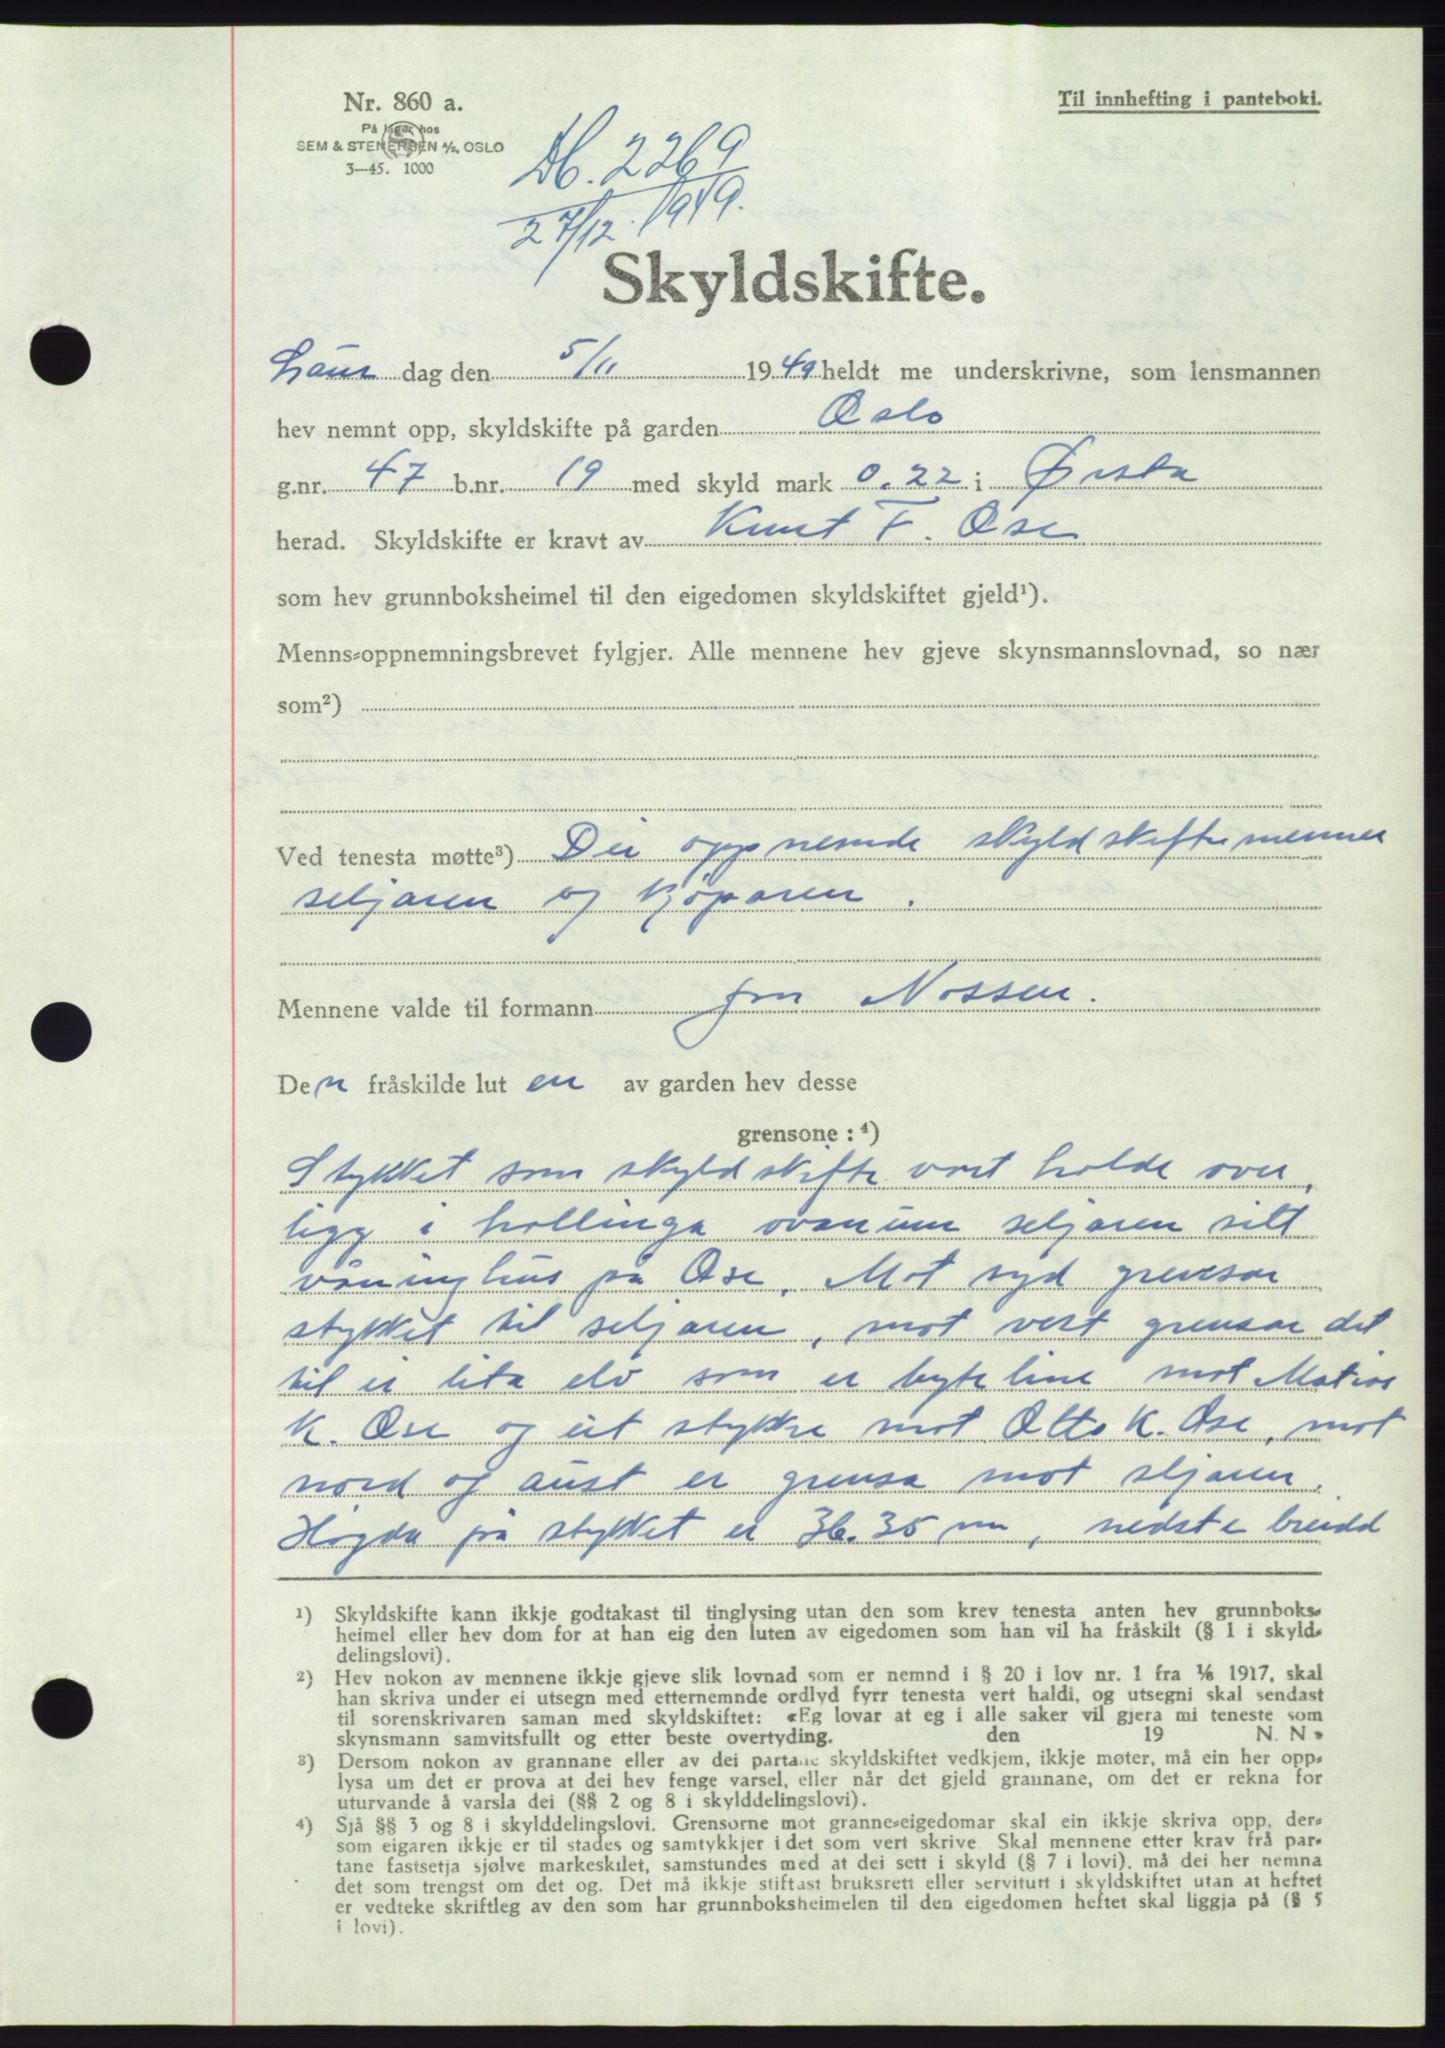 Nr. 860 a.
På lager hos
SEM & STENERSEN A/S, OSLO
3—45. 1000
Til innhefting i panteboki.
Db. 2269
27/12. 1949.
Skyldskifte.
Laur dag den 5/11 1949 heldt me underskrivne, som lensmannen
hev nemnt opp, skyldskifte på garden Oslo
g.nr. 47 b.nr. 19 med skyld mark 0.22 i Ørsta
herad. Skyldskifte er kravt av Knut F. Ose
som hev grunnboksheimel til den eigedomen skyldskiftet gjeld¹).
Menns-oppnemningsbrevet fylgjer. Alle mennene hev gjeve skynsmannslovnad, so nær
som²)
Ved tenesta møtte³) Dei oppnemde skyldskiftemennene
seljaren og kjöparen.
Mennene valde til formann Jon Nossen.
Den fråskilde lut en av garden hev desse
grensone :⁴)
Stykket som skyldskifte vart halde over,
ligg i hallinga ovanum seljaren sitt
våninghus på Ose. Mot syd grensar
stykket til seljaren, mot vest grensar det
til ei lita elv som er byteline mot Matias
K. Ose og eit stykke mot Otto K. Ose, mot
nord og aust er grensa mot seljaren.
Högda på stykket er 36.35 m, nedste breidd
1) Skyldskifte kann ikkje godtakast til tinglysing utan den som krev tenesta anten hev grunnboks-
heimel eller hev dom for at han eig den luten av eigedomen som han vil ha fråskilt (§ 1 i skyld-
delingslovi).
2) Hev nokon av mennene ikkje gjeve slik lovnad som er nemnd i § 20 i lov nr. 1 fra 1/6 1917, skal
han skriva under ei utsegn med etternemnde ordlyd fyrr tenesta vert haldi, og utsegni skal sendast
til sorenskrivaren saman med skyldskiftet: «Eg lovar at eg i alle saker vil gjera mi teneste som
skynsmann samvitsfullt og etter beste overtyding. den 19 N. N»
3) Dersom nokon av grannane eller av dei partane skyldskiftet vedkjem, ikkje møter, må ein her opp-
lysa um det er prova at dei hev fenge varsel, eller når det gjeld grannane, om det er rekna for
uturvande å varsla dei (§§ 2 og 8 i skylddelingslovi).
4) Sjå §§ 3 og 8 i skylddelingslovi. Grensorne mot granne-eigedomar skal ein ikkje skriva opp, der-
som eigaren ikkje er til stades og samtykkjer i det som vert skrive. Skal mennene etter krav frå par-
tane fastsetja sjølve markeskilet, samstundes med at dei sett i skyld (§ 7 i lovi), må dei her nemna
det som trengst om det og. Det må ikkje stiftast bruksrett eller servitutt i skyldskiftet utan at heftet
er vedteke skriftleg av den som har grunnboksheimelen til den eigedomen heftet skal liggja på (§ 5
i lovi).